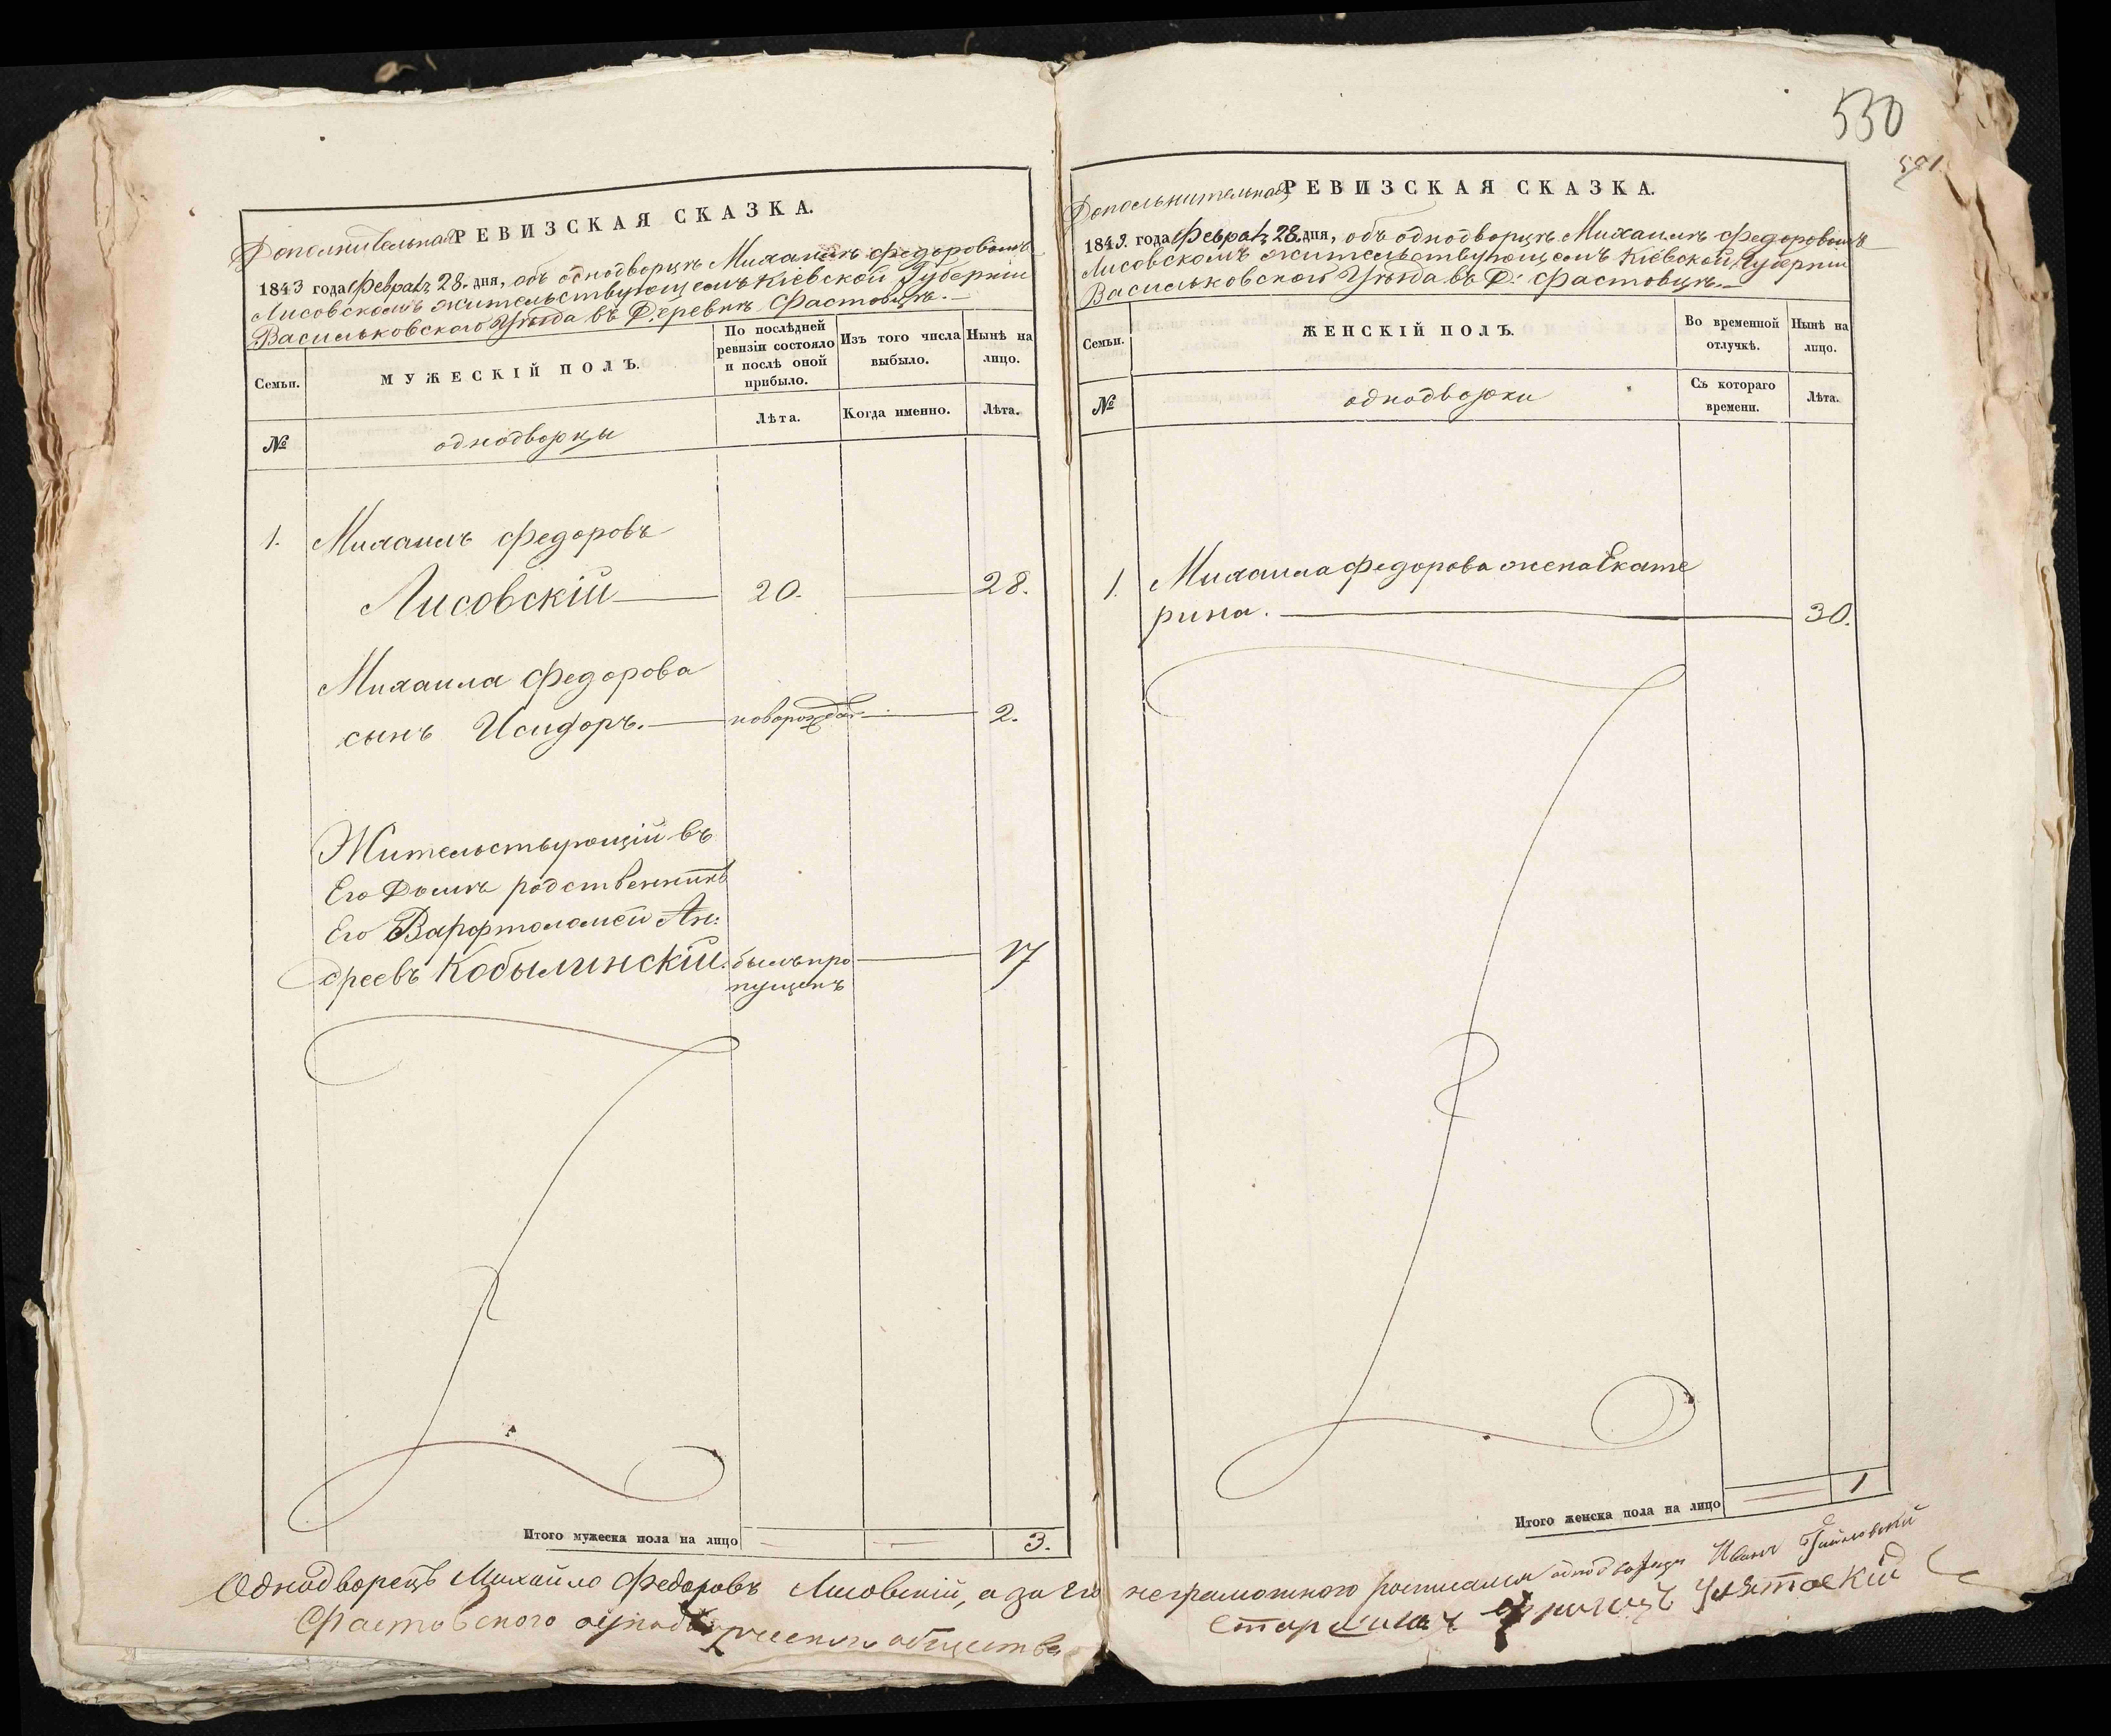 Дополнительная РЕВИЗСКАЯ СКАЗКА.
1843 года Февраля 28. дня, объ однодворцѣ Михаилѣ Федоровомъ
Лисовскомъ жительствующемъ Кіевской Губерніи
Васильковского Уѣзда въ Деревнѣ Фастовцѣ.—
Семьи.
МУЖЕСКІЙ ПОЛЪ.
По послѣдней ревизіи состояло и послѣ оной прибыло.
Изъ того числа выбыло.
Нынѣ на лицо.
№
однодворцы
Лѣта.
Когда именно.
Лѣта.
1. Михаилъ Федоровъ
Лисовскій 20. 28.
Михаила Федорова
сынъ Исидоръ. новорожден 2.
Жительствующій въ
Его Домѣ родственникъ
Его Варфтоломей Ан:
дреевъ Кобылинскій. былъ про 17
пущенъ
Итого мужеска пола на лицо 3.
Однодворецъ Михайло Федоровъ Лисовскій, а за его
Фастовского общества
530
Дополнительная РЕВИЗСКАЯ СКАЗКА.
1843. года Февраля 28. дня, объ однодворцѣ Михаилѣ Федоровомъ
Лисовскомъ жительствующемъ Кіевской Губерніи
Васильковского Уѣзда въ Д: Фастовцѣ.—
Семьи.
ЖЕНСКІЙ ПОЛЪ.
Во временной отлучкѣ.
Нынѣ на лицо.
№
однодворки
Съ котораго времени.
Лѣта.
1. Михаила Федорова жена Екате
рина. 30.
Итого женска пола на лицо 1
неграмотного росписался однодворец Иванъ
Старшина